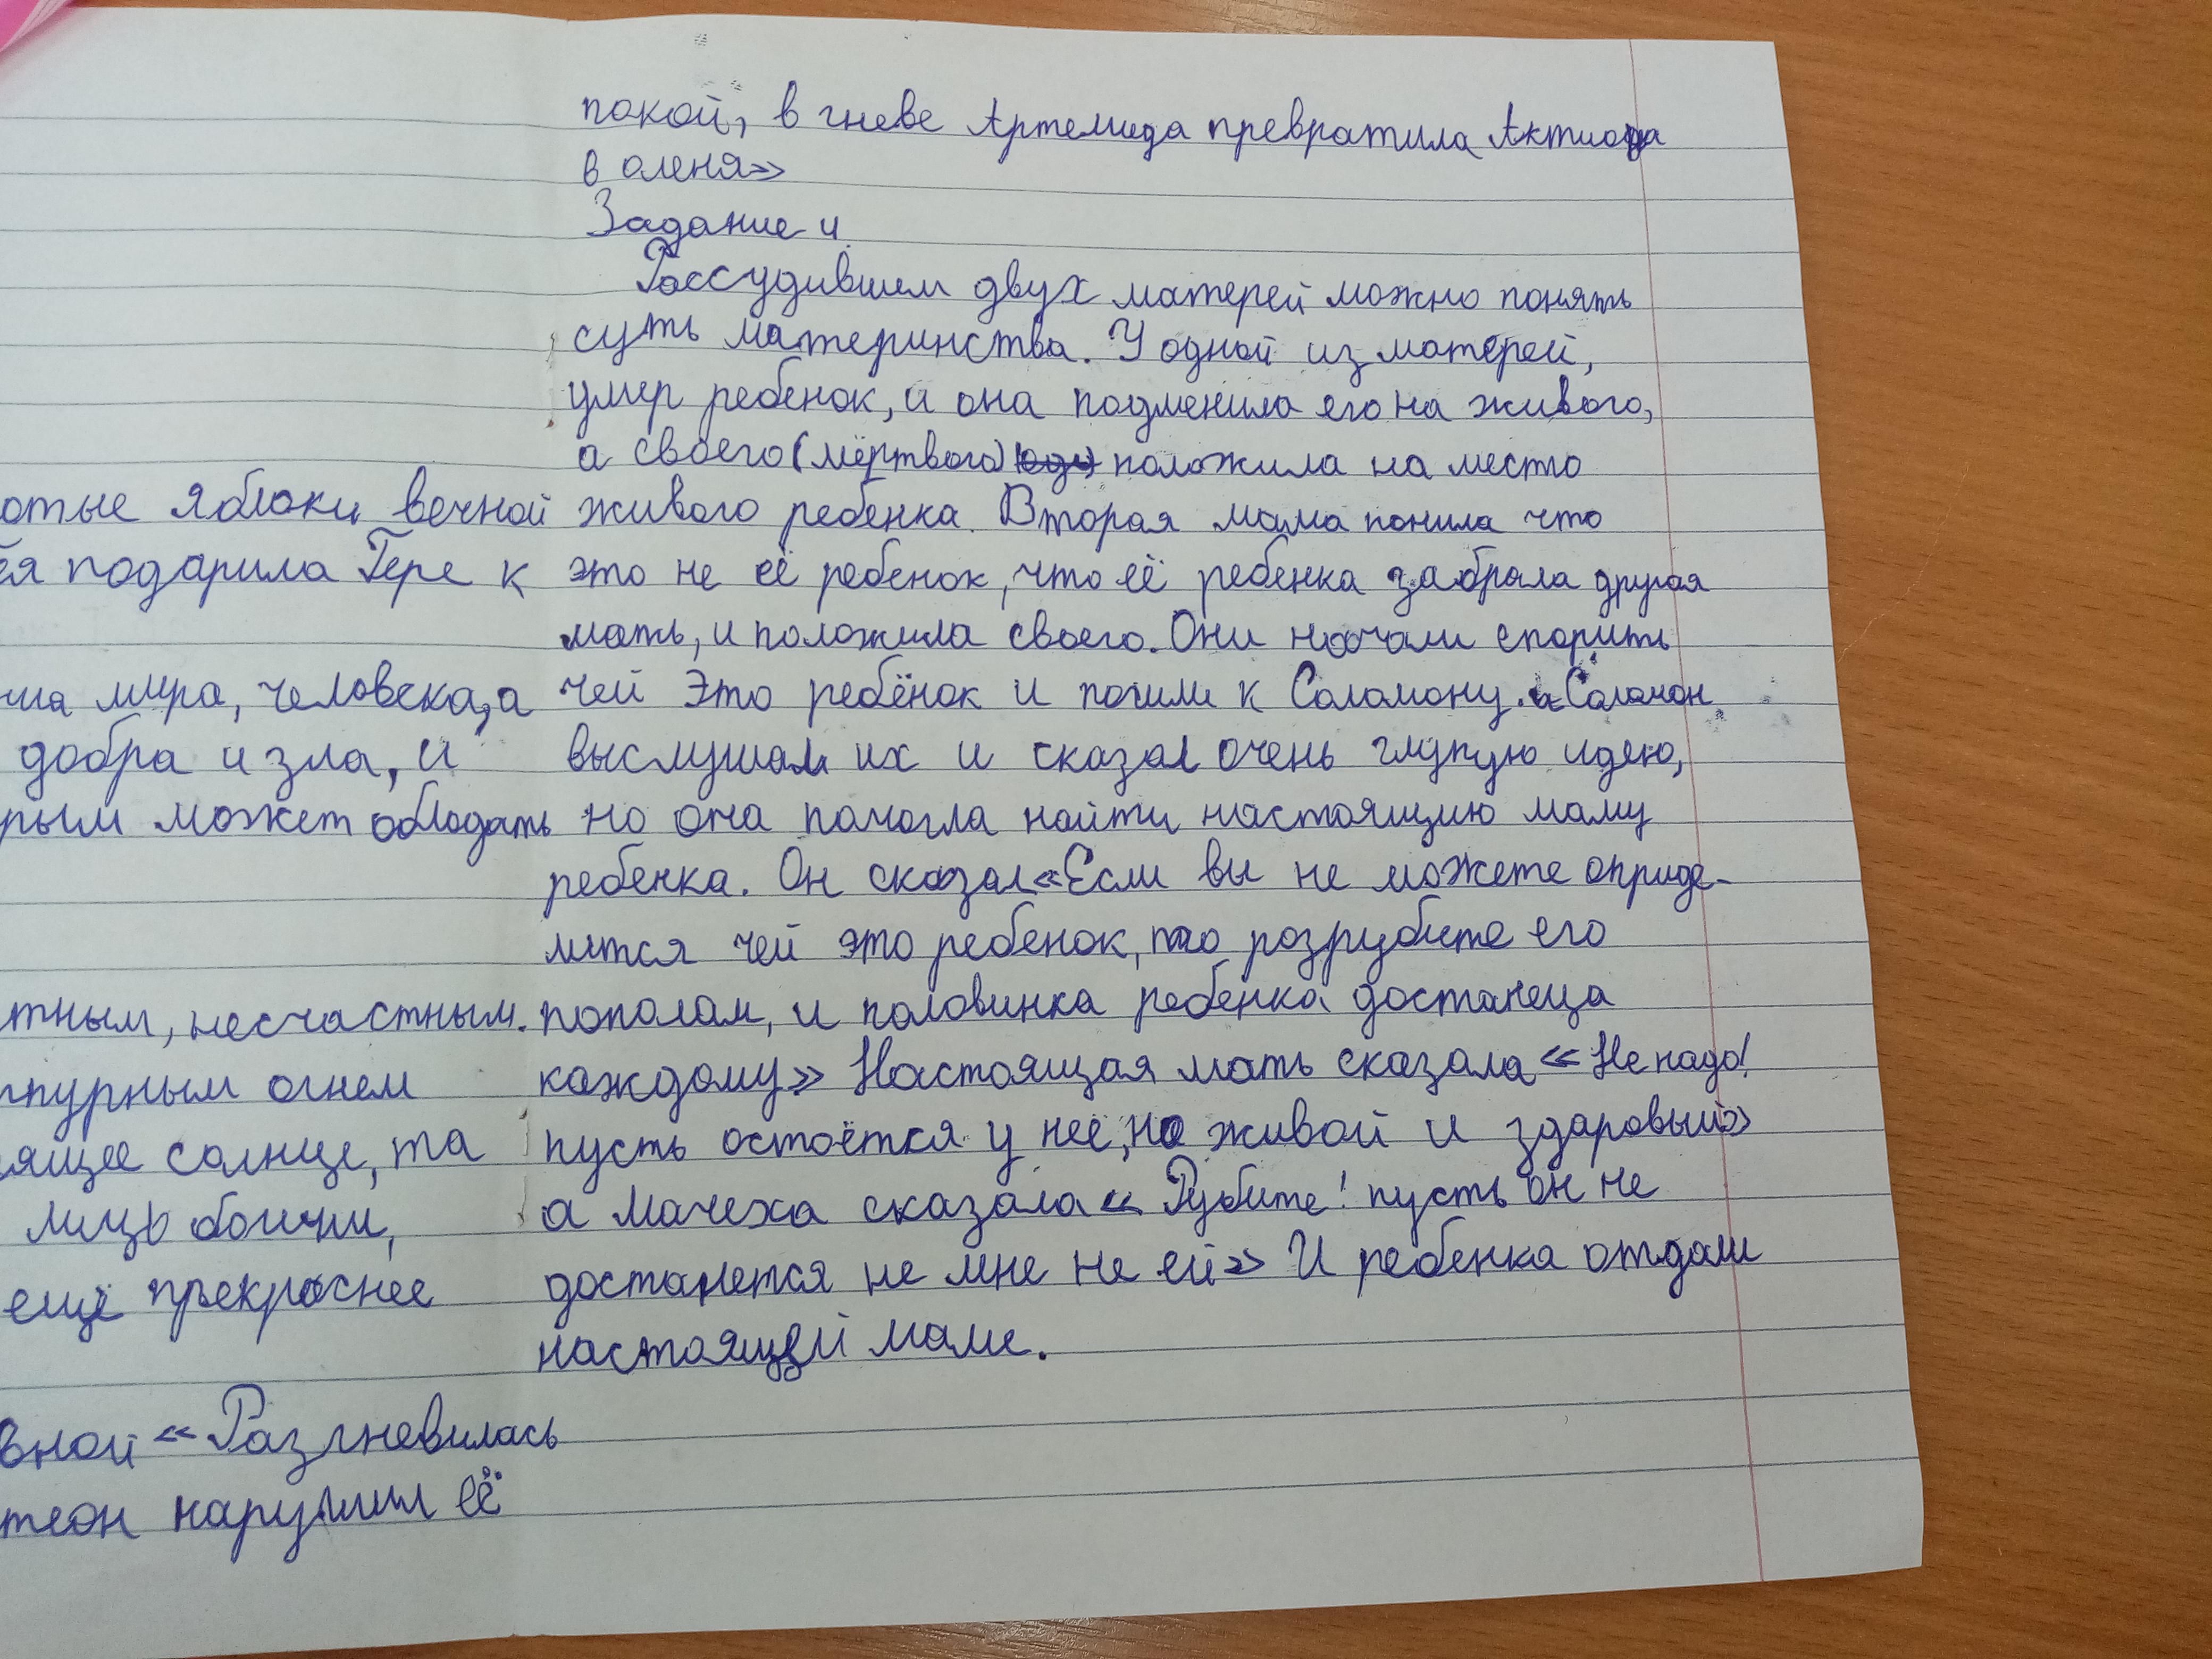 отые яблоки вечной
ея подарила Гере к
мира, человека, а
добра и зла, и
рым может обладать
тным, несчастным.
пурным огнем
ящее солнце, та
лицо богини,
ещё прекраснее
вной «Разгневилась
теон нарушил её
покой, в гневе Артемида превратила
в оленя»
Задание 4
Рассудившем двух матерей можно понять
суть материнства. У одной из матерей,
умер ребенок, и она подменила его на живого,
а своего (мёртвого) положила на место
живого ребенка. Вторая мама понила что
это не её ребенок, что её ребенка забрала другая
мать, и положила своего. Они начали спорить
чей это ребёнок и пошли к Соломону. Соломон
выслушал их и сказал очень глупую идею,
но она помогла найти настоящию маму
ребенка. Он сказал «Если вы не можете оприде-
лится чей это ребенок, то розрубите его
пополам, и половинка ребенка достанеца
каждому» Настоящая мать сказала «Не надо!
пусть остаётся у неё, но живой и здаровый»
а мачеха сказала «Рубите! пусть он не
достанется не мне не ей» И ребенка отдали
настоящей маме.